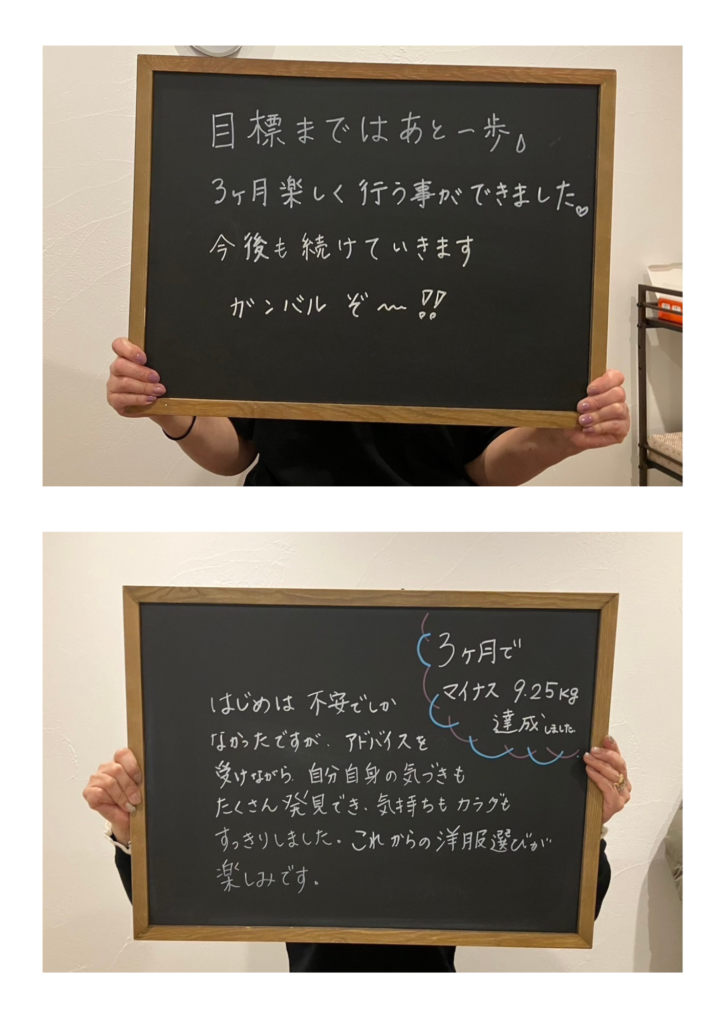 目標まではあと一歩。
3ヶ月楽しく行う事ができました♡
今後も続けていきます
ガンバルぞ〜!!
3ヶ月で
マイナス 9.25kg
達成しました
はじめは 不安でしか
なかったですが、アドバイスを
受けながら、自分自身の気づきも
たくさん発見でき、気持ちもカラダも
すっきりしました。これからの洋服選びが
楽しみです。